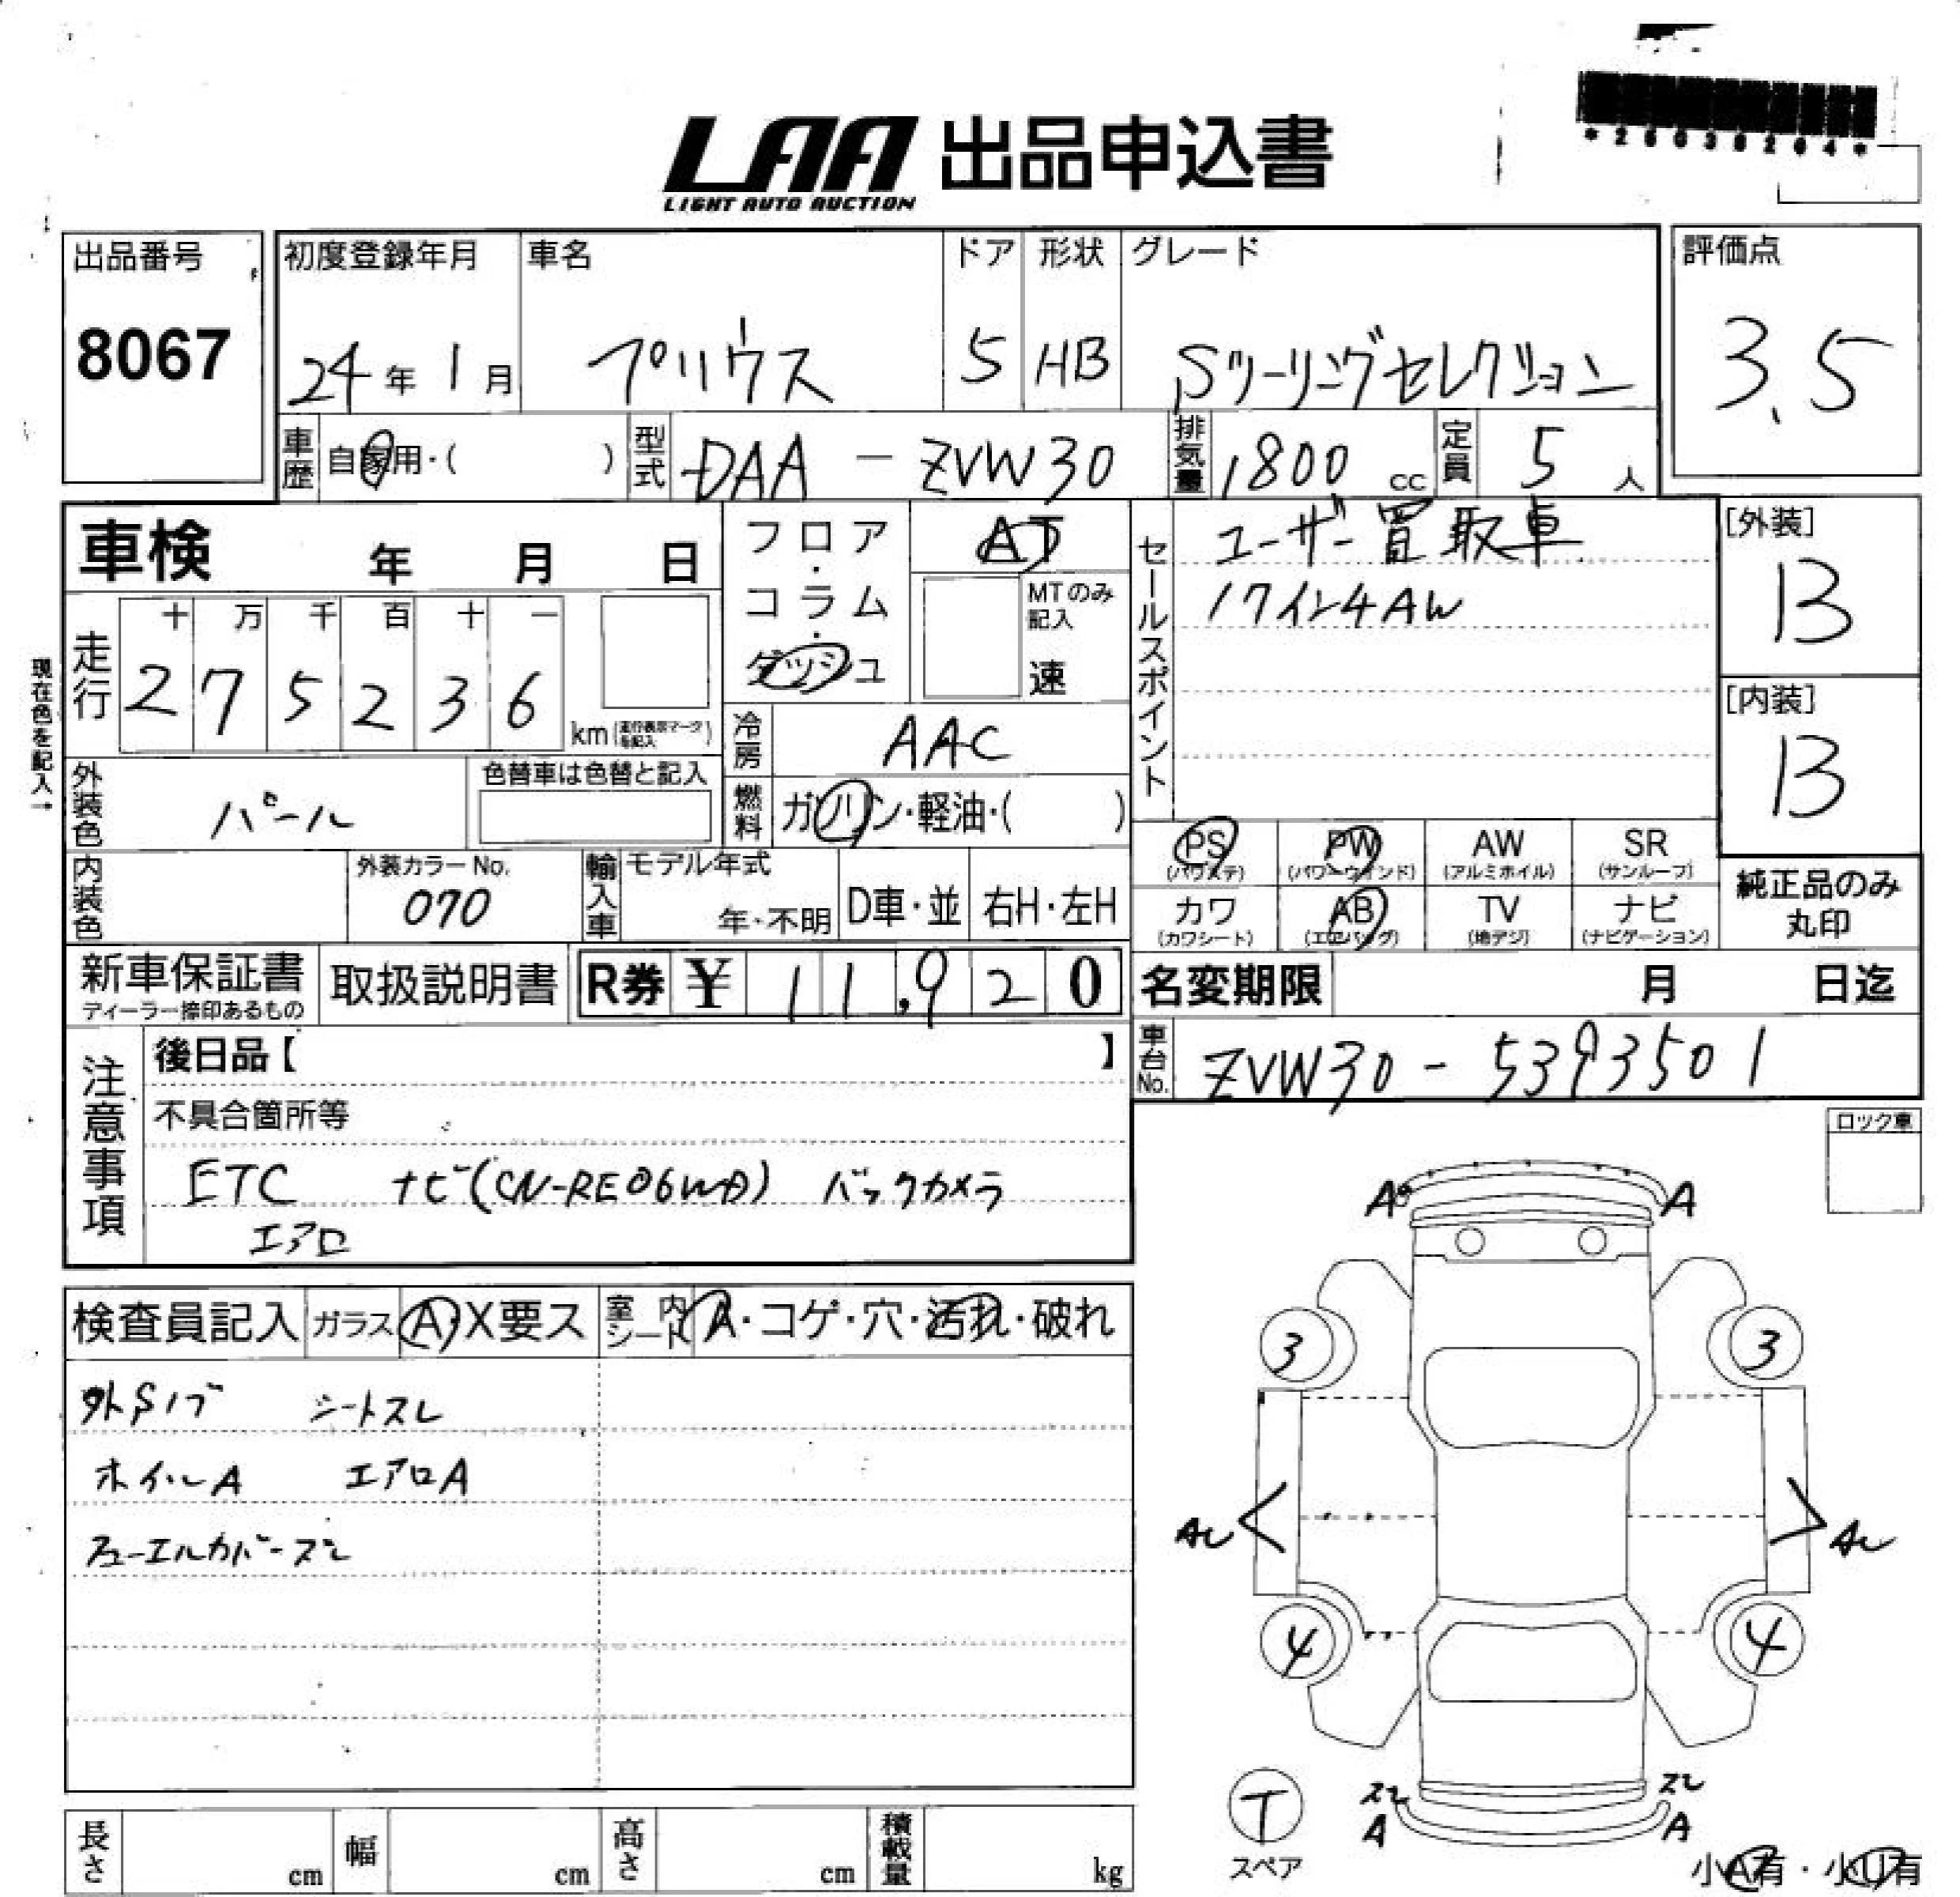 *26038204*
LAA 出品申込書
LIGHT AUTO AUCTION
出品番号
8067
初度登録年月
24年1月
車名
プリウス
ドア
5
形状
HB
グレード
Sツーリングセレクション
評価点
3.5
車歴 自家用・( )
型式 DAA-ZVW30
排気量 1800 cc
定員 5人
車検 年 月 日
フロア・コラム・ダッシュ
AT
MTのみ記入
速
セールスポイント
ユーザー買取車
17インチAW
[外装]
B
[内装]
B
現在色を記入→
走行
十 万 千 百 十 一
2 7 5 2 3 6 km (走行表示マークを記入)
冷房 AAC
外装色 パール
色替車は色替と記入
燃料 ガソリン・軽油・( )
PS (パワステ)
PW (パワーウインド)
AW (アルミホイル)
SR (サンルーフ)
カワ (カワシート)
AB (エアバッグ)
TV (地デジ)
ナビ (ナビゲーション)
純正品のみ丸印
内装色
外装カラーNo.
070
輸入車
モデル年式
年・不明
D車・並
右H・左H
新車保証書
ディーラー捺印あるもの
取扱説明書
R券 ¥ 11,920
名変期限 月 日迄
車台No. ZVW30-5393501
注意事項
後日品【 】
不具合箇所等
ETC ナビ(CN-RE06WD) バックカメラ
エアロ
ロック車
検査員記入
ガラス A・X要ス
室内シート A・コゲ・穴・汚れ・破れ
外Sノブ シートスレ
ホイールA エアロA
フューエルカバーズレ
A A
3 3
4 4
T
スペア
ズレ ズレ
A A
小A有・小U有
長さ cm
幅 cm
高さ cm
積載量 kg